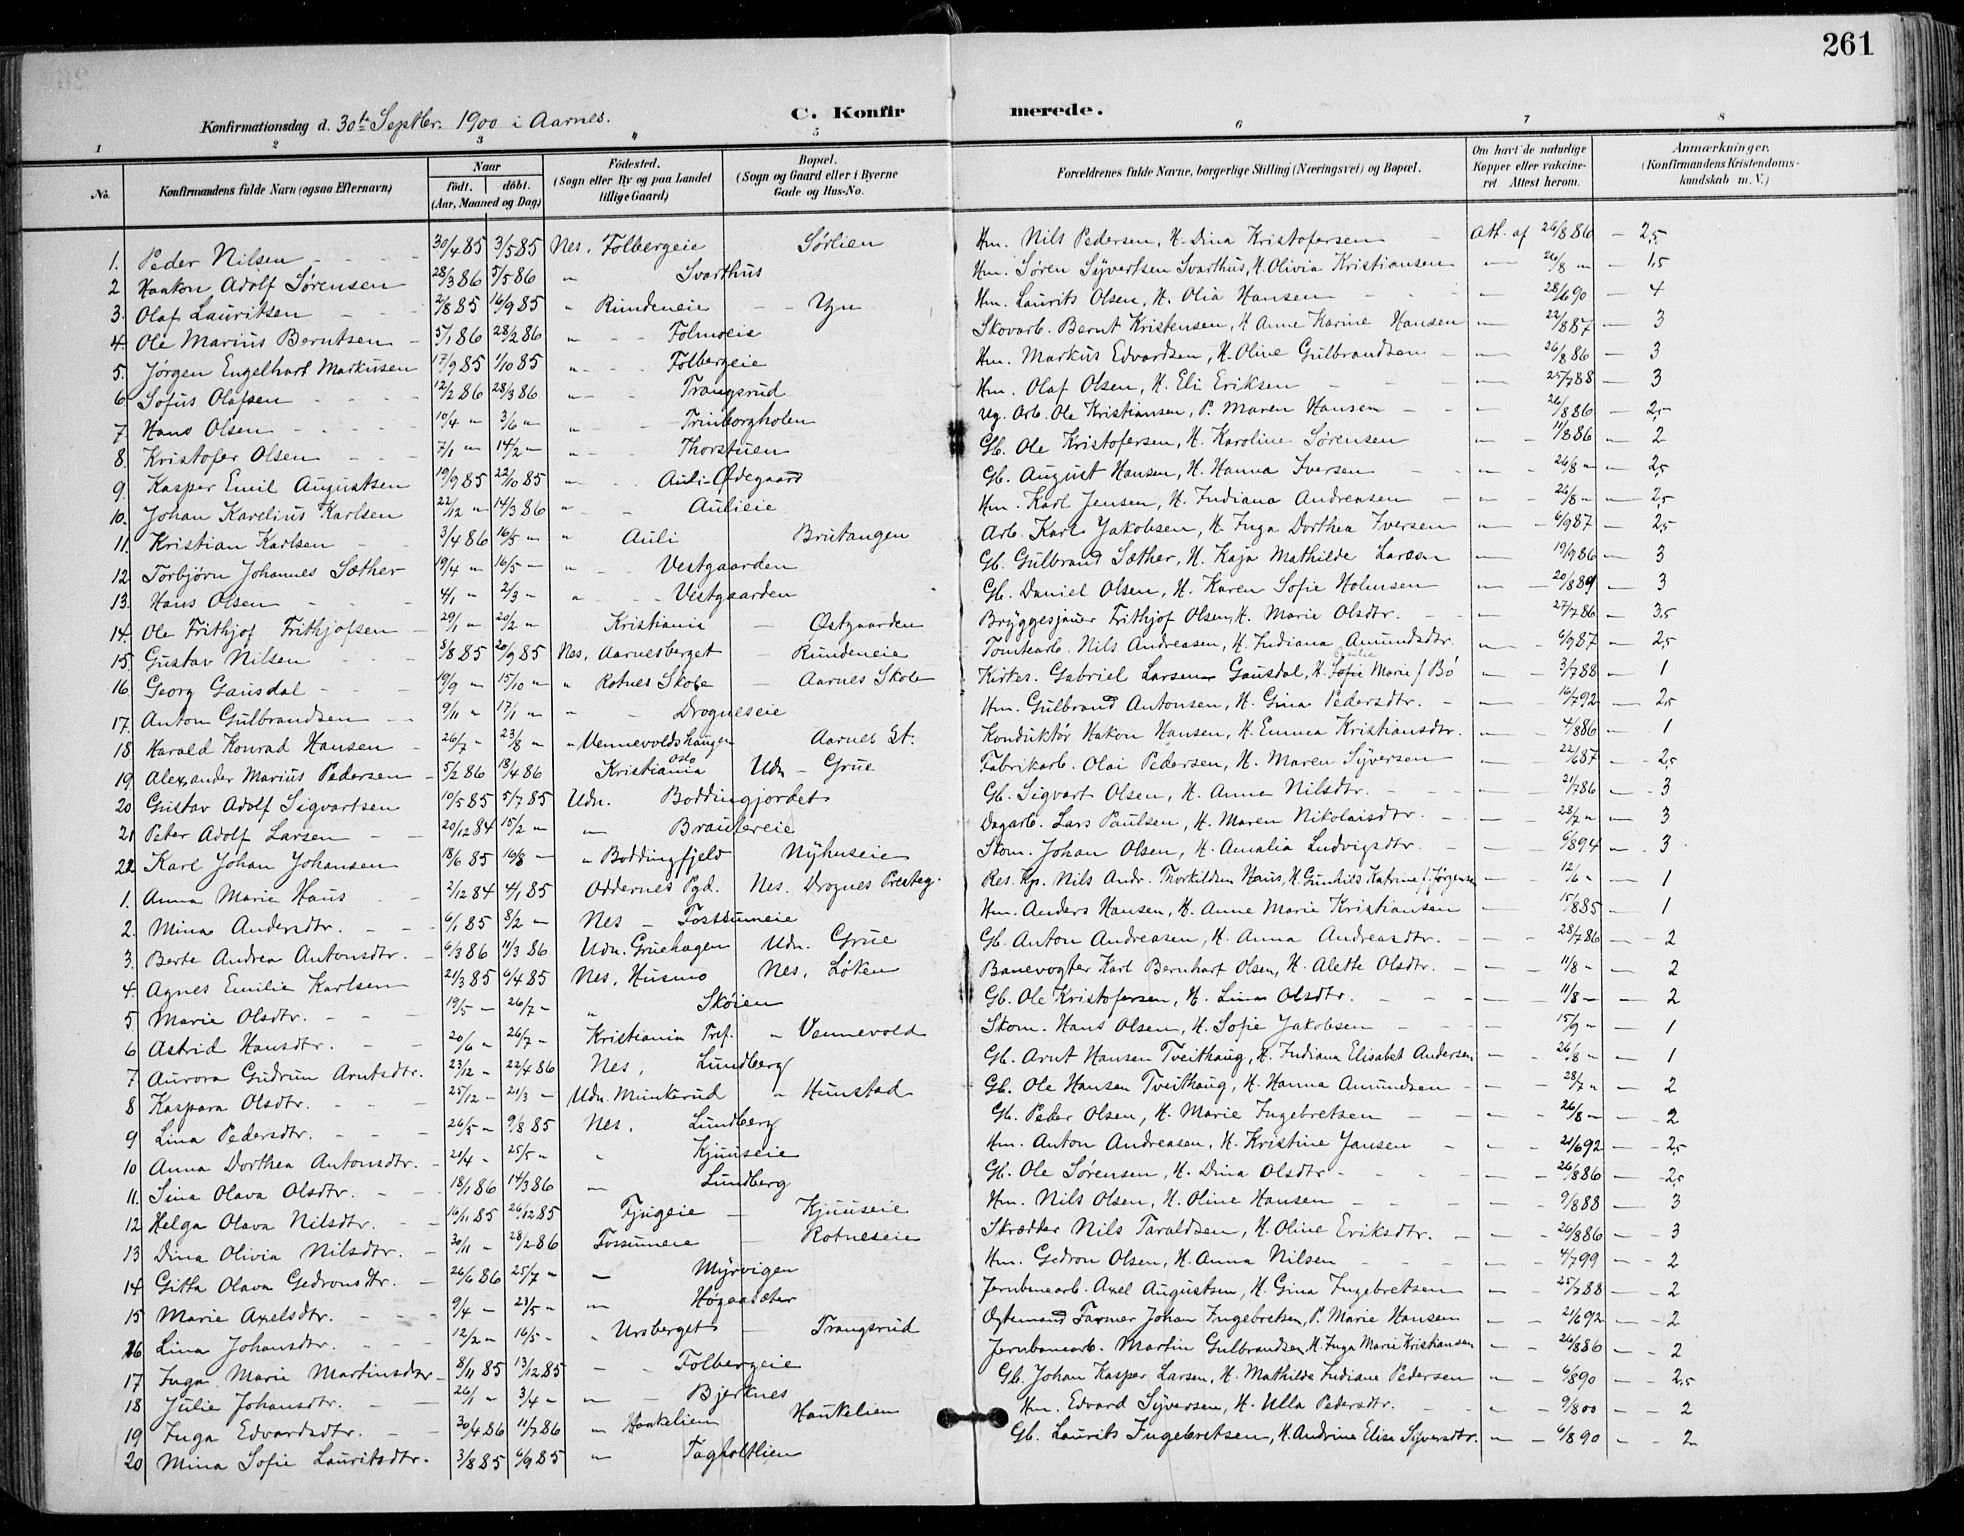 261
Konfirmationsdag d. 30te Septbr. 1900 i Aarnes. C. Konfirmerede.
1 2 3 4 5 6 7 8
No. Konfirmandens fulde Navn (ogsaa Efternavn) Naar født. døbt. (Aar, Maaned og Dag) Fødested. (Sogn eller By og paa Landet tillige Gaard) Bopæl. (Sogn og Gaard eller i Byerne Gade og Hus-No. Forældrenes fulde Navne, borgerlige Stilling (Næringsvei) og Bopæl. Om havt de naturlige Kopper eller vaccineret. Attest herom. Anmærkninger. (Konfirmandens Kristendomskundskab m. V.)
1. Peder Nilsen 30/4 85 3/5 85 Nes. Folbergeie Sørlien Hm. Nils Pedersen, H. Dina Kristofersen Att. af 26/8 86 2,5
2 Haakon Adolf Sørensen 28/3 86 5/5 86 " Svarthus Hm. Søren Syvertsen Svarthus, H. Olivia Kristiansen 26/8 " 1,5
3. Olaf Lauritsen 2/8 85 16/9 85 " Rundeneie Hm. Laurits Olsen, H. Olia Hansen 28/6 90 4
4. Ole Marius Berntsen 5/1 86 28/2 86 " Folmoeie Skovarb. Bernt Kristensen, H. Anne Karine Hansen 22/8 87 3
5. Jørgen Engelhart Markusen 17/9 85 1/10 85 " Folbergeie Hm. Markus Edvardsen, H. Oline Gulbrandsen 26/8 86 3
6 Sofus Olafsen 12/2 86 28/3 86 " Trangsrud Hm. Olaf Olsen, H. Eli Eriksen 25/7 88 3
7. Hans Olsen 10/4 " 3/6 " " Trinborgholen Ug. Arb. Ole Kristiansen, P. Maren Hansen 26/8 86 2,5
8. Kristofer Olsen 7/1 " 14/2 " " Thorstuen Gb. Ole Kristofersen, H. Karoline Sørensen 11/8 86 2
9. Kasper Emil Augustsen 19/9 85 22/10 85 " Auli-Ødegaard Gb. August Hansen, H. Hanna Iversen 26/8 " 2,5
10. Johan Karelius Karlsen 22/12 " 14/3 86 " Aulieie Hm. Karl Jensen, H. Indiana Andreasen 26/8 " 2,5
11. Kristian Karlsen 3/4 86 16/5 " " Auli Brutangen Arb. Karl Jakobsen, H. Inga Dorthea Iversen 6/9 87 2,5
12 Torbjørn Johannes Sæther 19/4 " 16/5 " " Vestgaarden Gb. Gulbrand Sæther, H. Kaja Mathilde Larsen 19/9 86 3
13. Hans Olsen 4/1 " 2/3 " " Vestgaarden Gb. Daniel Olsen, H. Karen Sofie Holmsen 20/8 89 3
14. Ole Frithjof Frithjofsen 29/1 " 20/2 " Kristiania Østgaarden Bryggesjauer Frithjof Olsen, H. Marie Olsdtr. 27/7 86 3,5
15. Gustav Nilsen 8/8 85 20/9 85 Nes. Aarnesberget Rundeneie Tomtearb. Nils Andreasen, H. Indiana Amundsdtr. 6/9 87 2,5
16 Georg Gausdal 19/9 " 15/10 " " Rotnes Skole Aarnes Skole Kirkes. Gabriel Larsen Gausdal, H. Sofie Marie f. Bö 3/7 88 1
17. Anton Gulbrandsen 9/11 " 17/1 " " Drogneseie Hm. Gulbrand Antonsen, H. Gina Pedersdtr. 16/7 92 2,5
18 Harald Konrad Hansen 26/7 " 23/8 " " Vennevoldshaugen Aarnes St. Konduktør Hakon Hansen, H. Emma Kristiansdtr. 4/8 86 1
19 Alexander Marius Pedersen 5/2 86 18/4 86 Kristiania Oslo Udn Grue Fabrikarb. Olai Pedersen, H. Maren Syversen 22/6 87 2,5
20 Gustav Adolf Sigvartsen 10/5 85 5/7 85 Udn. Boddingjordet Gb. Sigvart Olsen, H. Anna Nilsdtr. 21/7 86 3
21 Peter Adolf Larsen 20/12 84 15/2 " " Dagarb. Lars Paulsen, H. Maren Nikolaisdtr. 28/7 " 3
22 Karl Johan Johansen 18/6 85 16/8 " " Boddingfjeld Nyhuseie Skom. Johan Olsen, H. Amalia Ludvigsdtr. 6/8 94 3
1. Anna Marie Haus 2/12 84 4/1 85 Oddernes Pgd. Nes. Drognes Presteg. Res. Kp. Nils Andr. Thorkildsen Haus, H. Gunhild Katrine f. Jørgensen 12/6 " 1
2. Mina Andersdtr. 6/1 85 8/2 " Nes Fossumeie Hm. Anders Hansen, H. Anne Marie Kristiansen 15/8 85 1
3. Berte Andrea Antonsdtr. 6/3 86 11/3 86 Udn. Gruehagen Udn. Grue Gb. Anton Andreasen, H. Anna Andreasdtr. 28/7 86 2
4. Agnes Emilie Karlsen 21/3 85 6/4 85 Nes. Husmo Nes. Løken Banevogter Karl Bernhart Olsen, H. Alette Olsdtr. 11/8 " 2
5 Marie Olsdtr. 19/5 " 26/7 " " Skøien Gb. Ole Kristofersen, H. Lina Olsdtr. 11/8 " 2
6 Astrid Hansdtr. 20/6 " 26/7 " Kristiania " Vennevold Skom. Hans Olsen, H. Sofie Jakobsen 15/9 " 1
7 Aurora Gudrun Arntsdtr. 23/12 " 22/4 86 Nes, Lundberg Gb. Arnt Hansen Tveithaug, H. Indiana Elisabet Andersen 26/8 " 1
8 Kaspara Olsdtr. 25/12 " 21/3 " Udn. Munkerud " Hunstad Gb. Ole Hansen Tveithaug, H. Hanna Amundsen 28/7 " 2
9 Lina Pedersdtr. 26/5 " 9/8 85 Nes, Lundberg Gb. Peder Olsen, H. Marie Ingebretsen 26/8 " 2
10 Anna Dorthea Antonsdtr. 21/4 " 25/5 " " Kjuuseie Hm. Anton Andreasen, H. Kristine Jansen 21/6 92 2,5
11. Sina Olava Olsdtr. 18/1 86 14/3 86 " Lundberg Gb. Ole Sørensen, H. Dina Olsdtr 26/8 86 2,5
12 Helga Olava Nilsdtr. 16/11 85 26/12 85 Fjugeie Kjuuseie Hm. Nils Olsen, H. Oline Hansen 9/8 88 3
13 Dina Olivia Nilsdtr. 30/11 " 28/2 86 Fossumeie Rotneseie Skrædder Nils Taraldsen, H. Oline Eriksdtr. 26/8 86 3
14 Gitta Olava Gedronsdtr. 26/6 86 25/7 " " Myrvigen Hm. Gedron Olsen, H. Anna Nilsen 4/7 99 2
15 Marie Axelsdtr. 9/4 " 23/5 " " Høgaasæter Jernbanearb. Axel Augustsen, H. Gina Ingebretsen 25/7 88 2
16 Lina Johansdtr. 12/2 " 16/5 " " Ursberget Trangsrud Ægtemand Farmer Johan Ingebretsen, P. Marie Hansen 21/6 92 2
17 Inga Marie Martinsdtr 8/11 85 13/12 85 Folbergeie Jernbanearb. Martin Gulbrandsen, H. Inga Marie Kristiansen 26/8 86 2
18 Julie Johansdtr. 26/1 " 3/4 " " Bjerknes Gb. Johan Kasper Larsen, H. Mathilde Indiane Pedersen 6/8 90 2,5
19 Inga Edvardsdtr. 30/4 86 11/7 86 " Haukelien Haukelien Hm. Edvard Syversen, H. Ulla Pedersdtr. 9/8 00 2
20 Mina Sofie Lauritsdtr. 3/8 85 6/9 85 " Tagholtlien Gb. Laurits Ingebretsen, H. Andrine Elise Syversdtr. 6/8 90 2